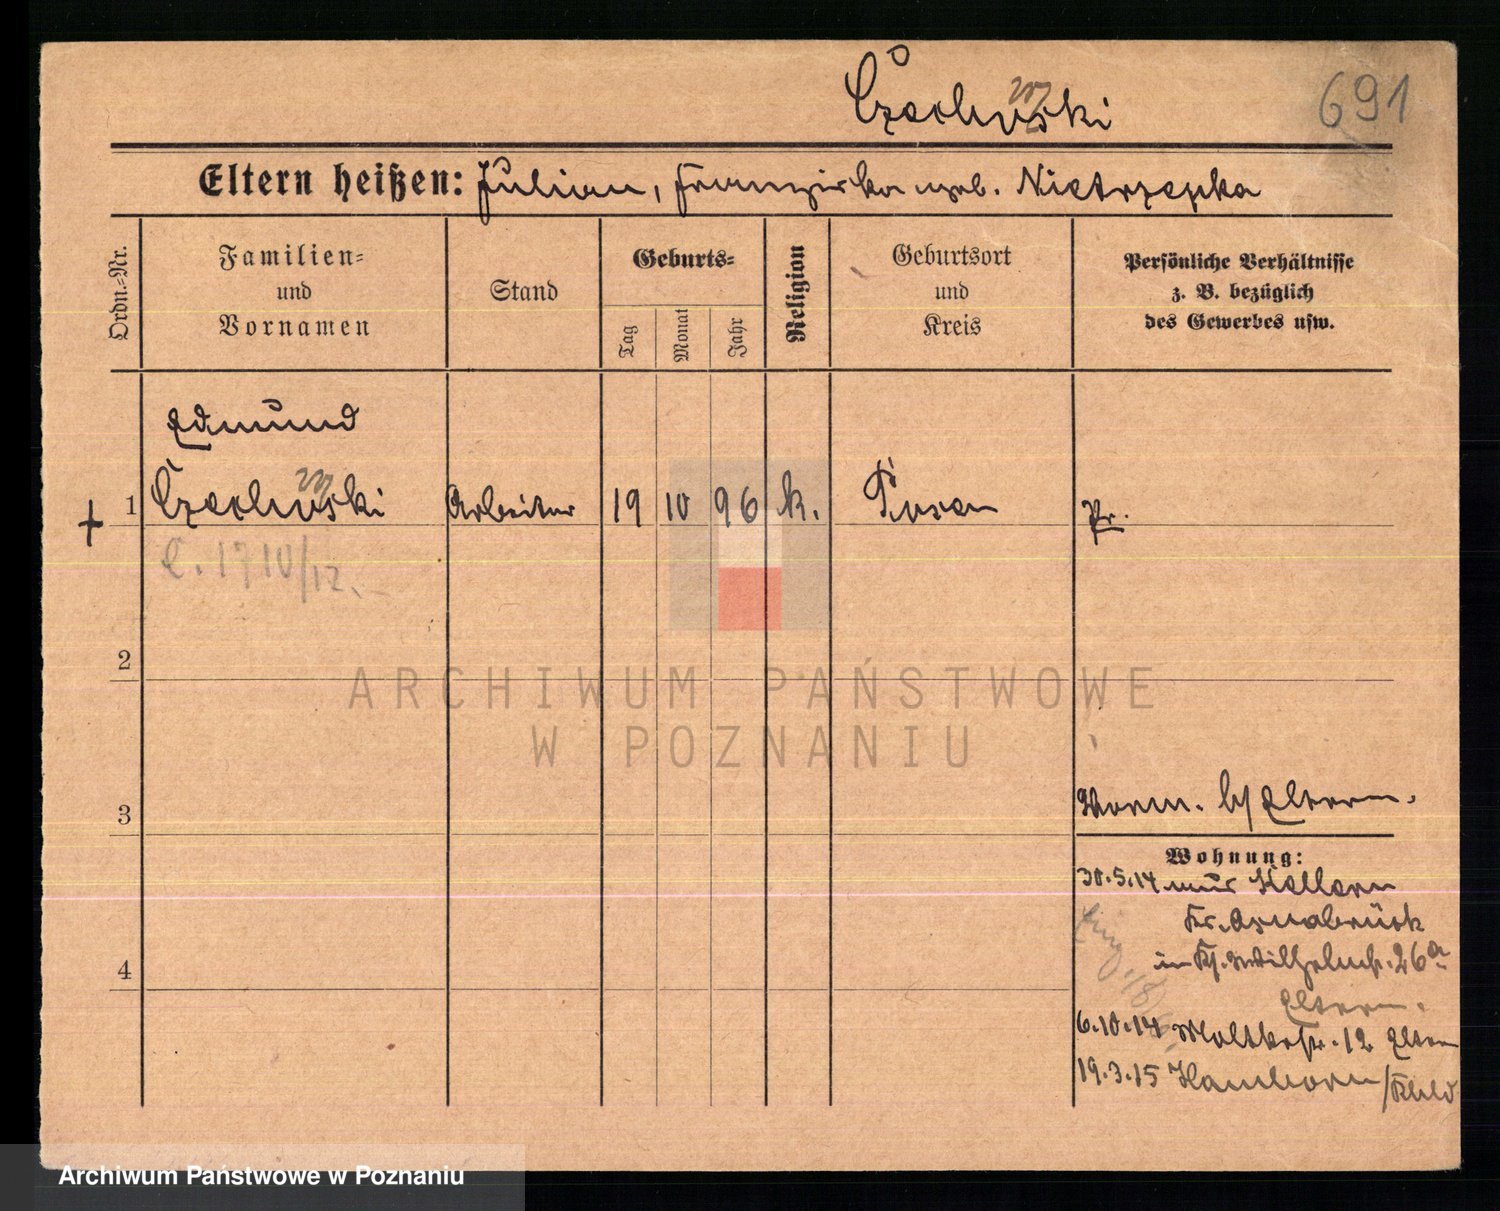 Czochoński
691
Eltern heißen: Julian, Franziska geb. Nietrzepka
Ordn.-Nr.
Familien-
und
Vornamen
Stand
Geburts-
Tag
Monat
Jahr
Religion
Geburtsort
und
Kreis
Persönliche Verhältnisse
z. B. bezüglich
des Gewerbes usw.
Edmund
1 Arbeiter 19 10 96 k. Posen Pr.
2
ARCHIWUM PAŃSTWOWE
W POZNANIU
3
b/ Eltern.
Wohnung:
30.5.14
Kr. Osnabrück
4
Wilhelmstr. 26a
Eltern.
6.10.14 Moltkestr. 12 Eltern
19.3.15 Hamborn
Archiwum Państwowe w Poznaniu